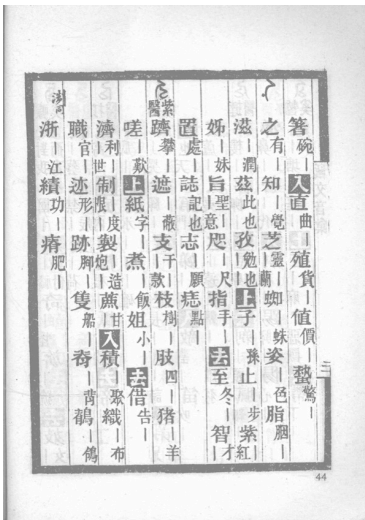 箸碗｜入直曲｜殖貨｜值價｜蟄驚｜
之有｜知｜覺芝靈｜｜蘭蜘｜蛛姿｜色脂胭｜
滋｜潤茲此也孜勉也上子｜孫止｜步紫｜紅
姊｜妹旨聖｜｜意咫｜尺指手｜去至冬｜智才｜
置處｜誌記也志｜願痣點｜
紫醫
躋攀｜遮｜蔽支干｜｜款枝樹｜肢四｜猪｜羊
嗟｜歎上紙｜字煮｜飯姐小｜去借告｜
濟利｜｜世制｜度｜限製｜造炮｜蔗甘｜入積｜聚織｜布
職官｜迹形｜跡脚｜隻船｜脊背｜鶺｜鴒
浙｜江績功｜瘠肥｜
三
44